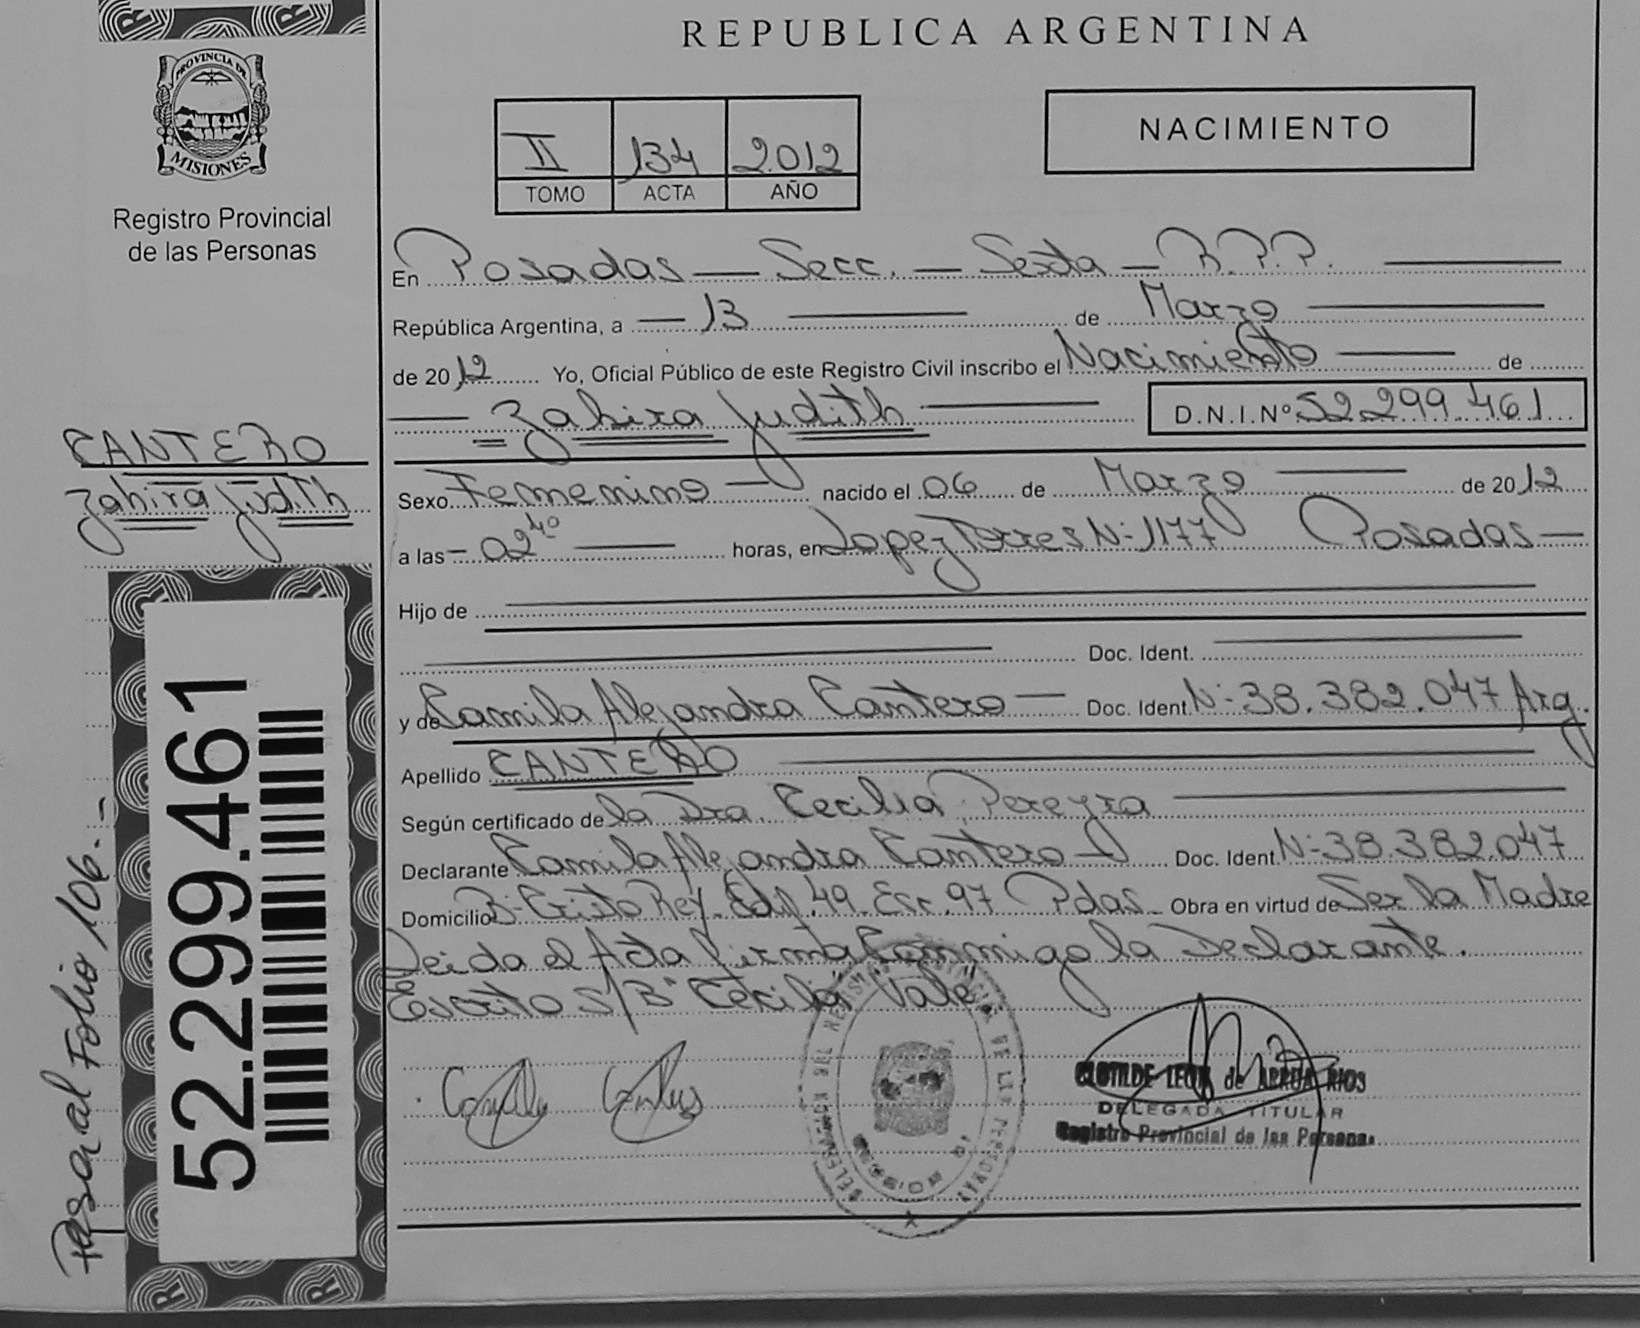 REPUBLICA ARGENTINA
PROVINCIA DE MISIONES
Registro Provincial
de las Personas
II 134 2.012
TOMO ACTA AÑO
NACIMIENTO
En Posadas — Secc. — Sexta — R.P.P.
República Argentina, a — 13 — de Marzo
de 2012 Yo, Oficial Público de este Registro Civil inscribo el Nacimiento — de
— Zahira Judith — D.N.I.Nº 52.299.461
CANTERO
Zahira Judith
Sexo Femenino — nacido el 06 de Marzo — de 2012
a las — 02⁴⁰ — horas, en Lopez Torres N° 1177 Posadas —
Hijo de
Doc. Ident.
y de Camila Alejandra Cantero — Doc. Ident N° 38.382.047 Arg.
Apellido CANTERO
Según certificado de la Dra. Cecilia Pereyra
Declarante Camila Alejandra Cantero — Doc. Ident N° 38.382.047
Domicilio B° Cristo Rey. Edif. 49. Esc. 97 Pdas. Obra en virtud de Ser la Madre
Leida el Acta firma Conmigo la Declarante.
Escrito S/B "Cecilia" Vale
CLOTILDE LEON de ARRUA RIOS
DELEGADA TITULAR
Registro Provincial de las Personas
52.299.461
Pasa al Folio 106.-